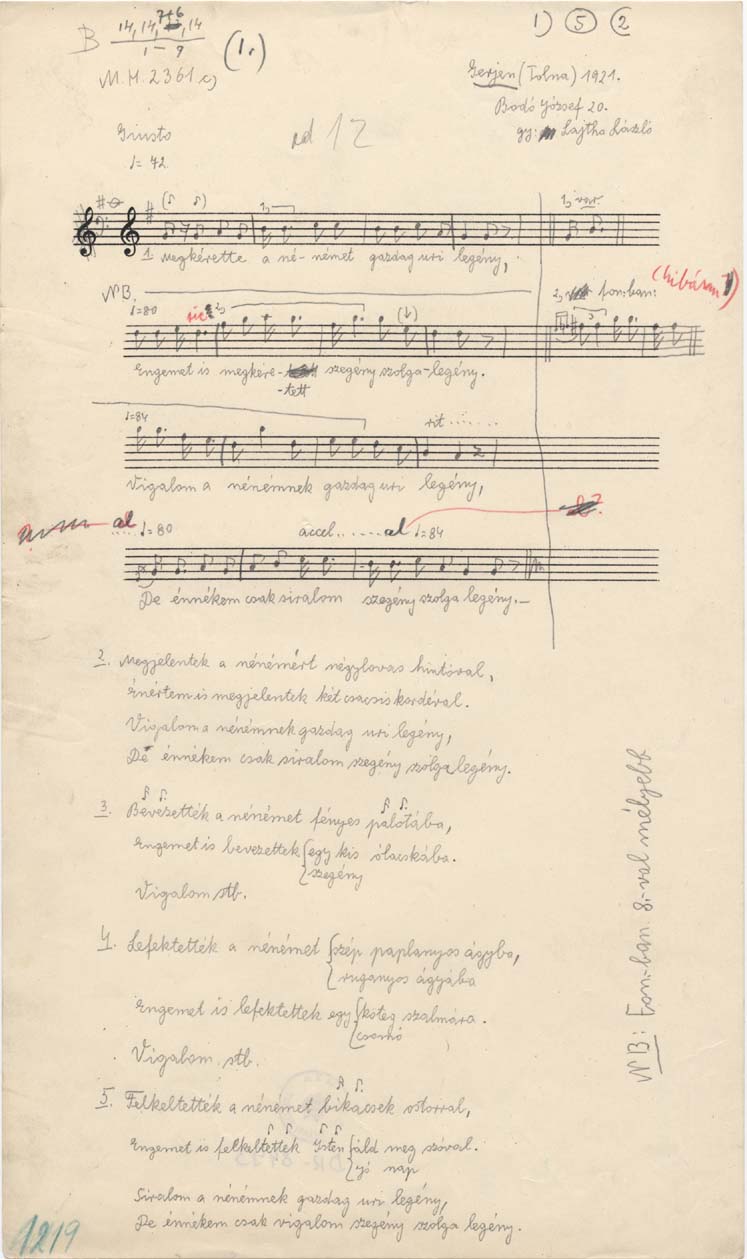 B 14, 14, 7+6, 14
1 – 9
(1.)
1) (5) (2
M.H. 2361 c)
Gerjen (Tolna) 1921.
Bodó József 20.
gy: Lajtha László
Giusto
ad 12
♩= 42
1, var.
1. Megkérette a né-német gazdag uri legény,
NB.
♩=80
sic
2, fon:ban:
(hibásan)
Engemet is megkére- szegény szolga-legény.
-tett
♩=84
rit ......
Vigalom a nénémnek gazdag uri legény,
al ♩=80
accel. ..... al ♩=84
De énnékem csak siralom szegény szolga legény.–
2. Megjelentek a nénémért négylovas hintóval,
Énértem is megjelentek két csacsis kordéval.
Vigalom a nénémnek gazdag uri legény,
De énnékem csak siralom szegény szolga legény.
3. Bevezették a nénémet fényes palotába,
Engemet is bevezettek {egy kis ólacskába.
{szegény
Vigalom stb.
4. Lefektették a nénémet {szép paplanyos ágyba,
{ruganyos ágyába
Engemet is lefektettek egy {köteg szalmára.
{csomó
Vigalom stb.
5. Felkeltették a nénémet bikacsek ostorral,
Engemet is felkeltettek Isten {áld meg szóval.
{jó nap
Siralom a nénémnek gazdag uri legény,
De énnékem csak vigalom szegény szolga legény.
NB: Fon:ban 8.-val mélyebb
1219